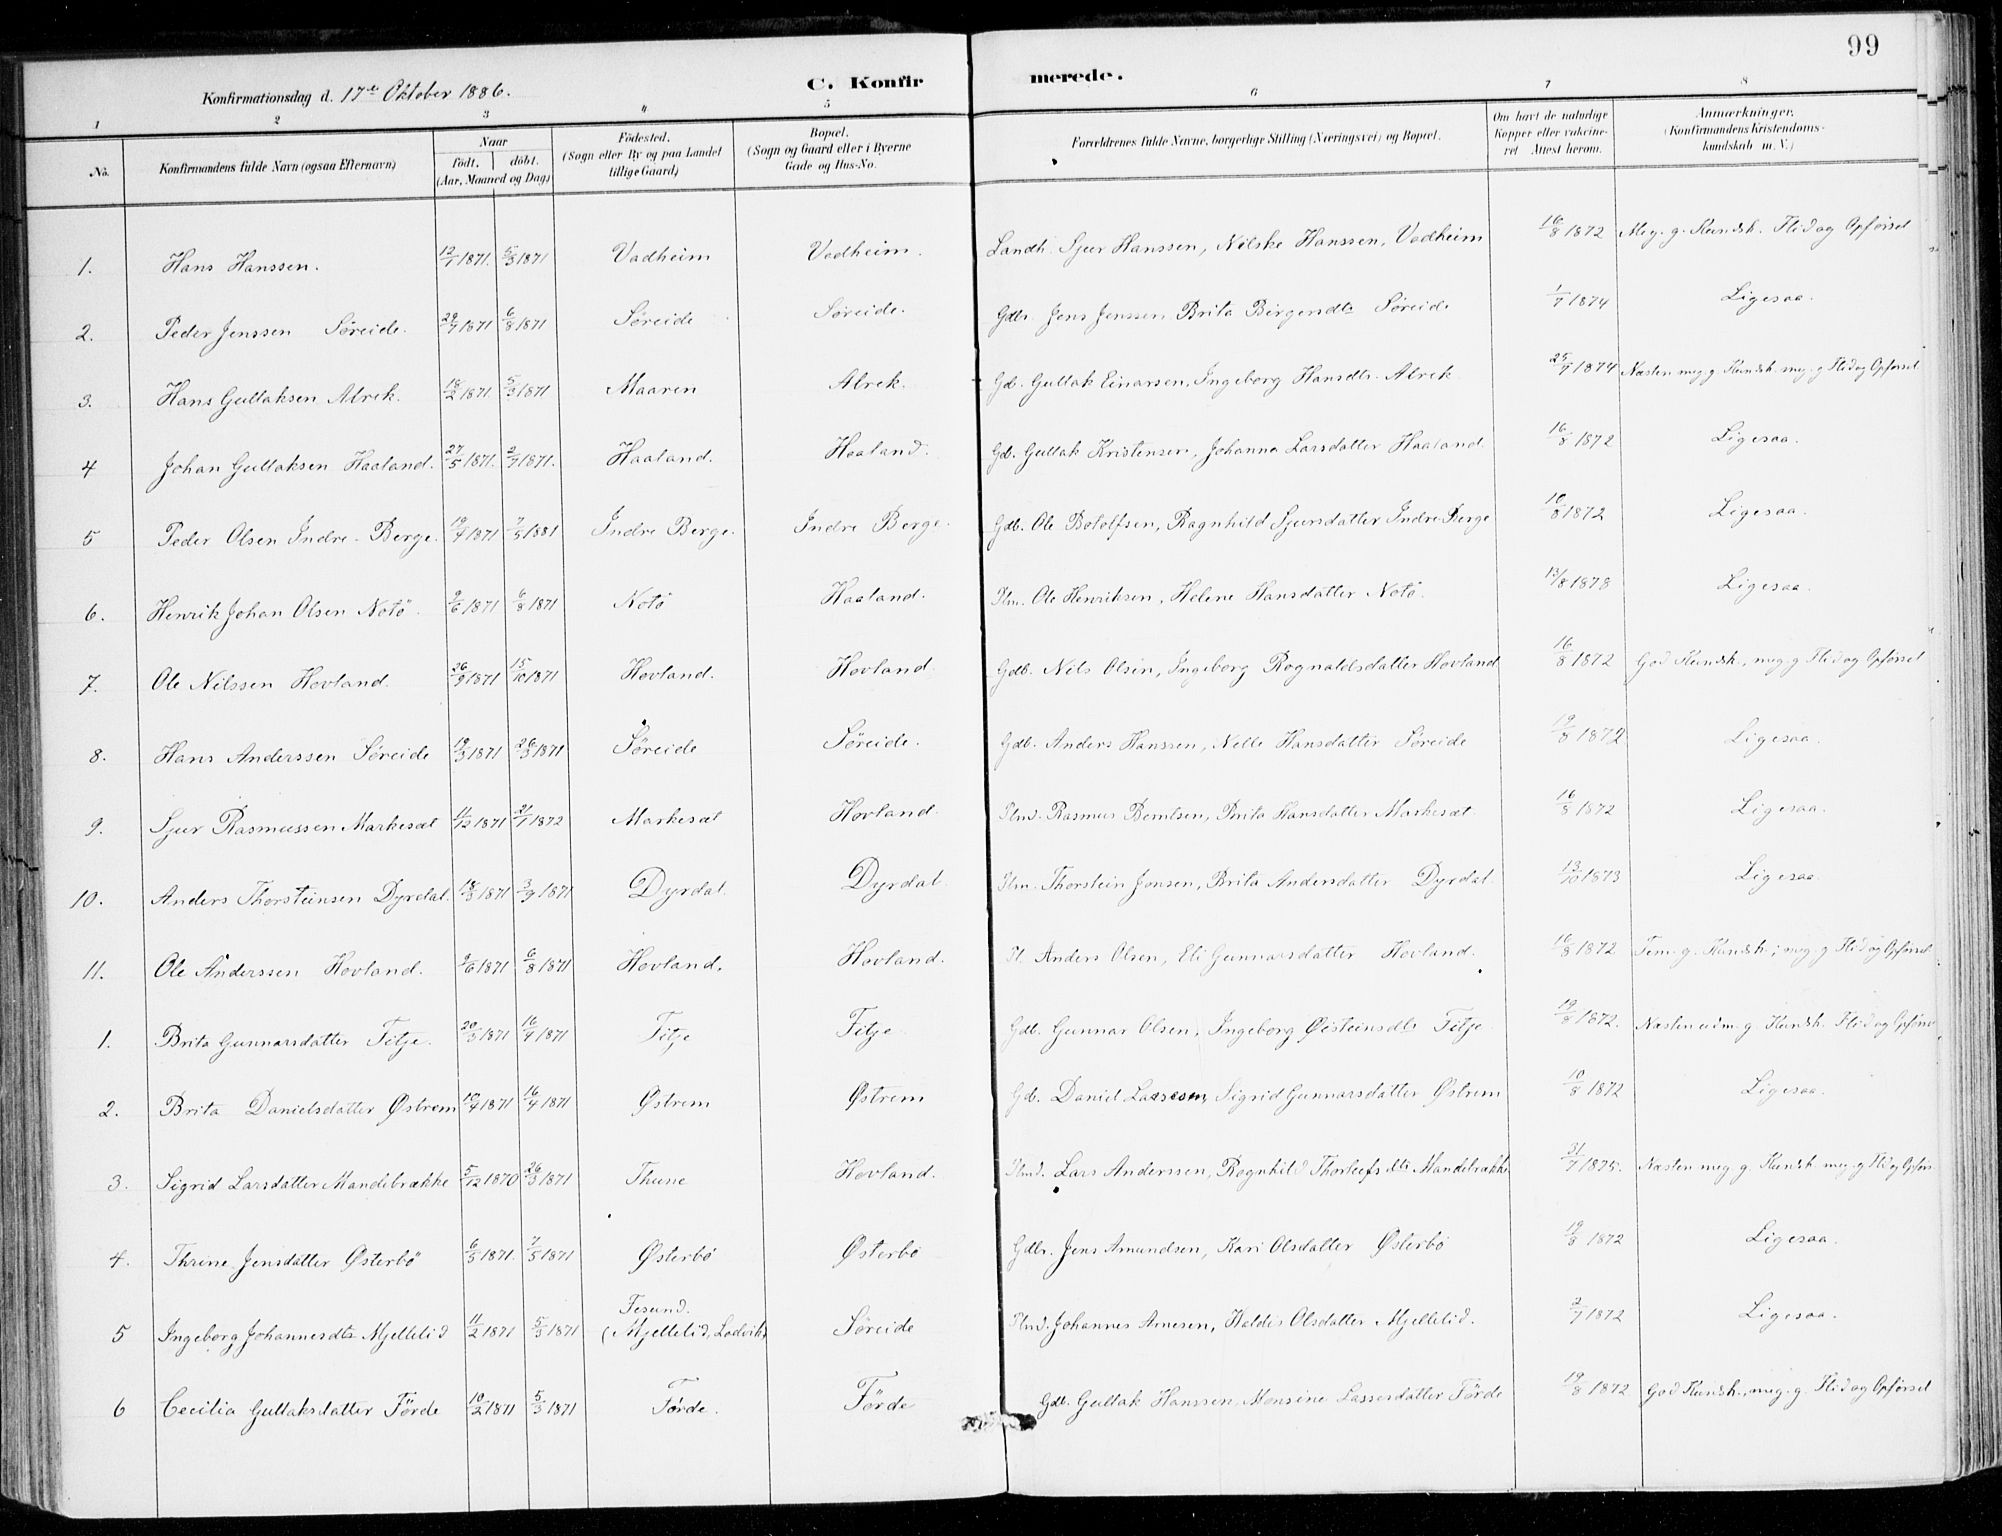 99
Konfirmationsdag d. 17de Oktober 1886. C. Konfirmerede.
1 2 3 4 5 6 7 8
No. Konfirmandens fulde Navn (ogsaa Efternavn) Naar født, døbt. (Aar, Maaned og Dag) Fødested. (Sogn eller By og paa Landet tillige Gaard) Bopæl. (Sogn og Gaard eller i Byerne Gade og Hus-No. Forældrenes fulde Navne, borgerlige Stilling (Næringsvei) og Bopæl. Om havt de naturlige Kopper eller vakcineret Attest herom. Anmærkninger. (Konfirmandens Kristendomskundskab m. V.)
1. Hans Hanssen. 12/1 1871. 5/3 1871 Vadheim Vadheim. Landh. Sjur Hanssen, Nilske Hanssen, Vadheim 16/8 1872 Meg. g. Kundsk. Flid og Opførsel
2. Peder Jenssen Søreide. 29/7 1871 6/8 1871 Søreide Søreide. Gdbr. Jens Jenssen Brita Birgersdtr Søreide 1/7 1874 Ligesaa.
3. Hans Gullaksen Alrek. 18/2 1871. 5/3 1871 Maaren Alrek. Gdb. Gullak Einarsen, Ingeborg Hansdtr. Alrek 25/7 1874 Næsten meg. g. Kundsk. meg. g Flid og Opførsel
4 Johan Gullaksen Haaland. 27/5 1871. 2/7 1871. Haaland. Haaland. Gdb. Gullak Kristensen, Johanna Larsdatter Haaland. 16/8 1872 Ligesaa.
5 Peder Olsen Indre-Berge. 19/4 1871 7/5 1881 Indre Berge. Indre Berge. Gdb. Ole Botolfsen, Ragnhild Sjursdatter Indre Berge 10/8 1872 Ligesaa.
6. Henrik Johan Olsen Notö. 9/6 1871 6/8 1871 Notö Haaland. Plm. Ole Henriksen, Helene Hansdatter Notö. 13/8 1878 Ligesaa.
7. Ole Nilssen Hovland. 26/9 1871 15/10 1871 Hovland. Hovland. Gdb. Nils Olsen, Ingeborg Rognaldsdatter Hovland 16/8 1872 God Kundsk., meg. g Flid og Opførsel
8. Hans Anderssen Søreide 19/3 1871 26/3 1871 Søreide Søreide. Gdb. Anders Hanssen, Nelle Hansdatter Søreide 19/8 1872 Ligesaa.
9. Sjur Rasmussen Markesæt 11/12 1871 21/1 1872 Markesæt Hovland. Plmd. Rasmus Berntsen, Brita Hansdatter Markesæt. 16/8 1872 Ligesaa.
10. Anders Thorsteinsen Dyrdal. 18/3 1871 3/9 1871 Dyrdal. Dyrdal. Plm. Thorstein Jonsen, Brita Andersdatter Dyrdal. 13/10 1873 Ligesaa.
11. Ole Anderssen Hovland. 9/6 1871 6/8 1871 Hovland. Hovland. Pl. Anders Olsen, Eli Gunnarsdatter Hovland. 16/8 1872 Tem. g. Kundsk.; meg. g Flid og Opførsel
1. Brita Gunnarsdatter Titje. 20/3 1871 16/4 1871 Titje Titje Gdb. Gunnar Olsen, Ingeborg Øisteinsdtr Titje 19/8 1872. Næsten udm. g. Kundsk. Flid og Opførsel
2. Brita Danielsdatter Østrem 10/4 1871 16/4 1871 Østrem Østrem Gdb. Daniel Lassesen, Sigrid Gunnarsdatter Østrem 10/8 1872 Ligesaa.
3. Sigrid Larsdatter Mandebrække 5/12 1870 26/3 1871 Thune Hovland. Plmd. Lars Anderssen, Ragnhild Thorleifsdtr Mandebrække 31/7 1875. Næsten meg. g. Kundsk. meg. g Flid og Opførs
4. Thrine Jensdatter Østerbö 6/3 1871. 7/5 1871 Østerbö Østerbö Gdbr. Jens Amundsen, Kari Olsdatter Østerbö 19/8 1872 Ligesaa.
5 Ingeborg Johannesdtr Mjellelid 11/2 1871 5/3 1871 (Mjellelid, Ladvik) Søreide Plmd. Johannes Arnesen, Haldis Olsdatter Mjellelid. 2/7 1872 Ligesaa.
6 Cecilia Gullaksdatter Förde 10/2 1871 5/3 1871 Förde. Förde Gdb. Gullak Hanssen, Monsine Lassesdatter Förde 19/8 1872 God Kundsk., meg. g. Flid og Opførsel